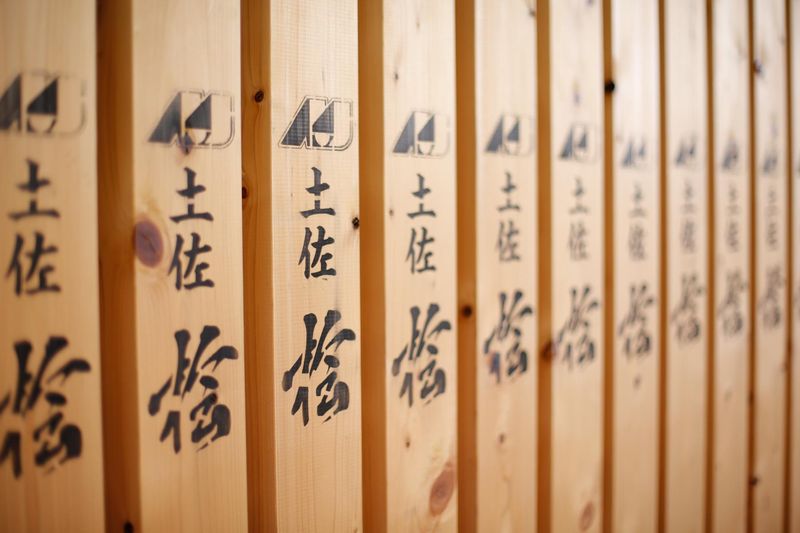 土佐桧
土佐桧
土佐桧
土佐桧
土佐桧
土佐桧
土佐桧
土佐桧